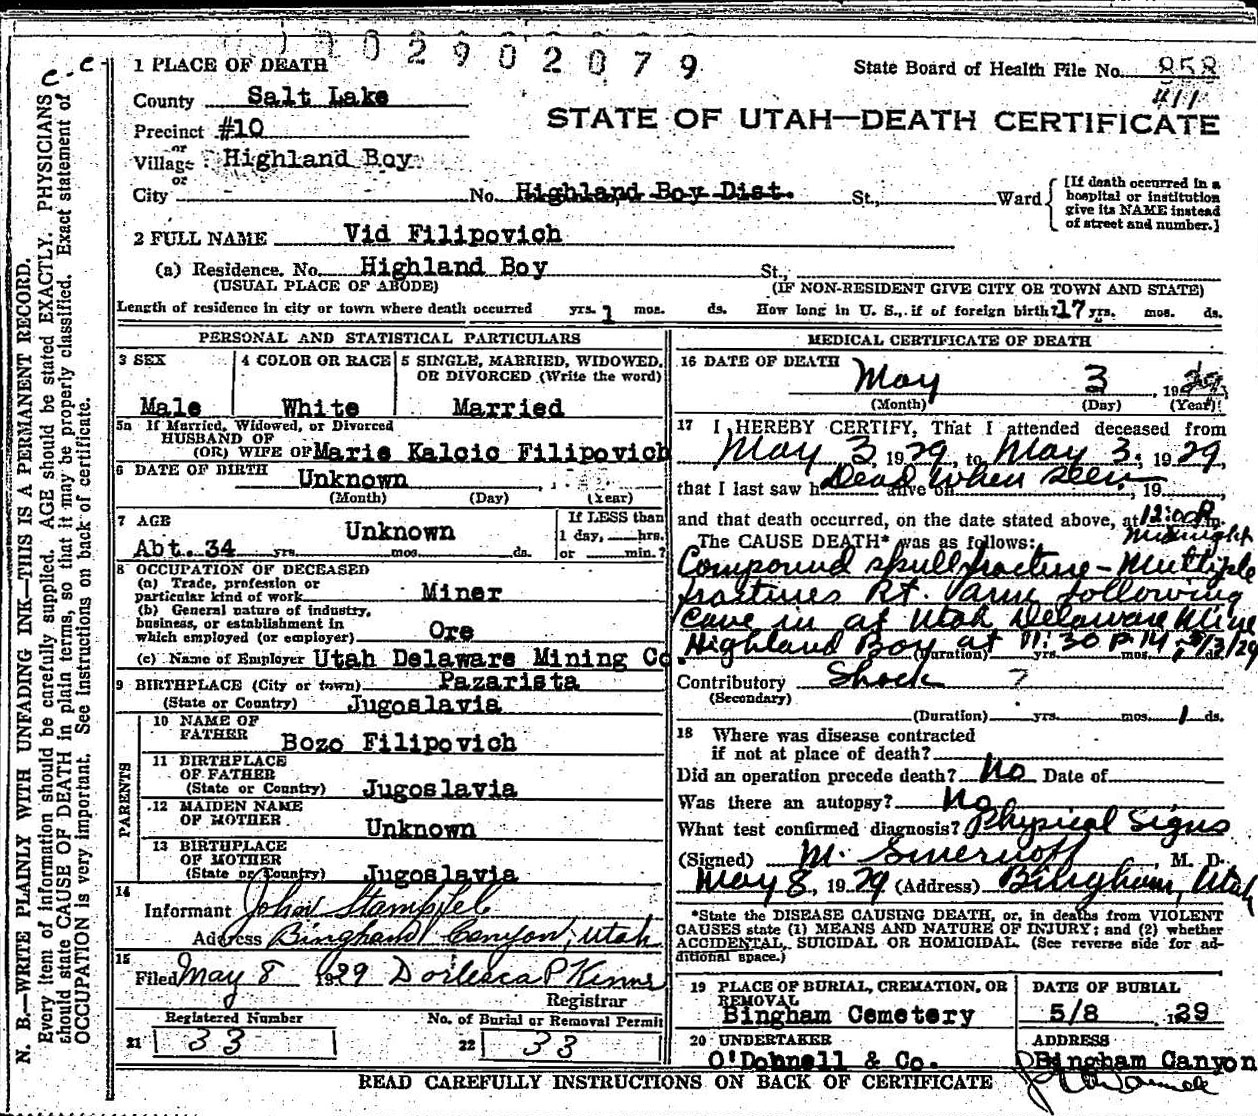 0 0 2 9 0 2 0 7 9
C. C.
1 PLACE OF DEATH
State Board of Health File No. 858
County Salt Lake
411
STATE OF UTAH—DEATH CERTIFICATE
Precinct #10
or
Village Highland Boy
or
City No. Highland Boy Dist. St., Ward
[If death occurred in a
hospital or institution
give its NAME instead
of street and number.]
2 FULL NAME Vid Filipovich
(a) Residence. No. Highland Boy St.,
(USUAL PLACE OF ABODE) (IF NON-RESIDENT GIVE CITY OR TOWN AND STATE)
Length of residence in city or town where death occurred yrs. 1 mos. ds. How long in U. S., if of foreign birth? 17 yrs. mos. ds.
PERSONAL AND STATISTICAL PARTICULARS
3 SEX 4 COLOR OR RACE 5 SINGLE, MARRIED, WIDOWED,
OR DIVORCED (Write the word)
Male White Married
5a If Married, Widowed, or Divorced
HUSBAND OF
(OR) WIFE OF Marie Kalcic Filipovich
6 DATE OF BIRTH
Unknown
(Month) (Day) (Year)
7 AGE Unknown If LESS than
1 day, hrs.
Abt. 34 yrs. mos. ds. or min.?
8 OCCUPATION OF DECEASED
(a) Trade, profession or
particular kind of work Miner
(b) General nature of industry,
business, or establishment in
which employed (or employer) Ore
(c) Name of Employer Utah Delaware Mining Co.
9 BIRTHPLACE (City or town) Pazarista
(State or Country) Jugoslavia
PARENTS
10 NAME OF
FATHER Bozo Filipovich
11 BIRTHPLACE
OF FATHER
(State or Country) Jugoslavia
12 MAIDEN NAME
OF MOTHER Unknown
13 BIRTHPLACE
OF MOTHER
(State or Country) Jugoslavia
14
Informant John Stampfel
Address Bingham Canyon, Utah
15
Filed May 8 1929 P Kinns
Registrar
Registered Number No. of Burial or Removal Permit
21 33 22 33
MEDICAL CERTIFICATE OF DEATH
16 DATE OF DEATH
May 3 , 1929
(Month) (Day) (Year)
17 I HEREBY CERTIFY, That I attended deceased from
May 3, 1929, to May 3, 1929,
that I last saw h alive on Dead when seen , 19 ,
and that death occurred, on the date stated above, at 12:00 m.
Midnight
The CAUSE DEATH* was as follows:
Compound skull fracture - Multiple
fractures Rt. arm following
cave in at Utah Delaware Mine
Highland Boy at 11:30 P.M. 5/3/29
(Duration) yrs. mos. ds.
Contributory Shock ?
(Secondary)
(Duration) yrs. mos. 1 ds.
18 Where was disease contracted
if not at place of death?
Did an operation precede death? No Date of
Was there an autopsy? No
What test confirmed diagnosis? Physical Signs
(Signed) M. Smernoff, M. D.
May 8, 1929 (Address) Bingham, Utah
*State the DISEASE CAUSING DEATH, or, in deaths from VIOLENT
CAUSES state (1) MEANS AND NATURE OF INJURY; and (2) whether
ACCIDENTAL, SUICIDAL OR HOMICIDAL. (See reverse side for ad-
ditional space.)
19 PLACE OF BURIAL, CREMATION, OR
REMOVAL
Bingham Cemetery
DATE OF BURIAL
5/8 , 1929
20 UNDERTAKER
O'Donnell & Co.
ADDRESS
Bingham Canyon
READ CAREFULLY INSTRUCTIONS ON BACK OF CERTIFICATE
N. B.—WRITE PLAINLY WITH UNFADING INK—THIS IS A PERMANENT RECORD.
Every item of information should be carefully supplied. AGE should be stated EXACTLY. PHYSICIANS
should state CAUSE OF DEATH in plain terms, so that it may be properly classified. Exact statement of
OCCUPATION is very important. See Instructions on back of certificate.